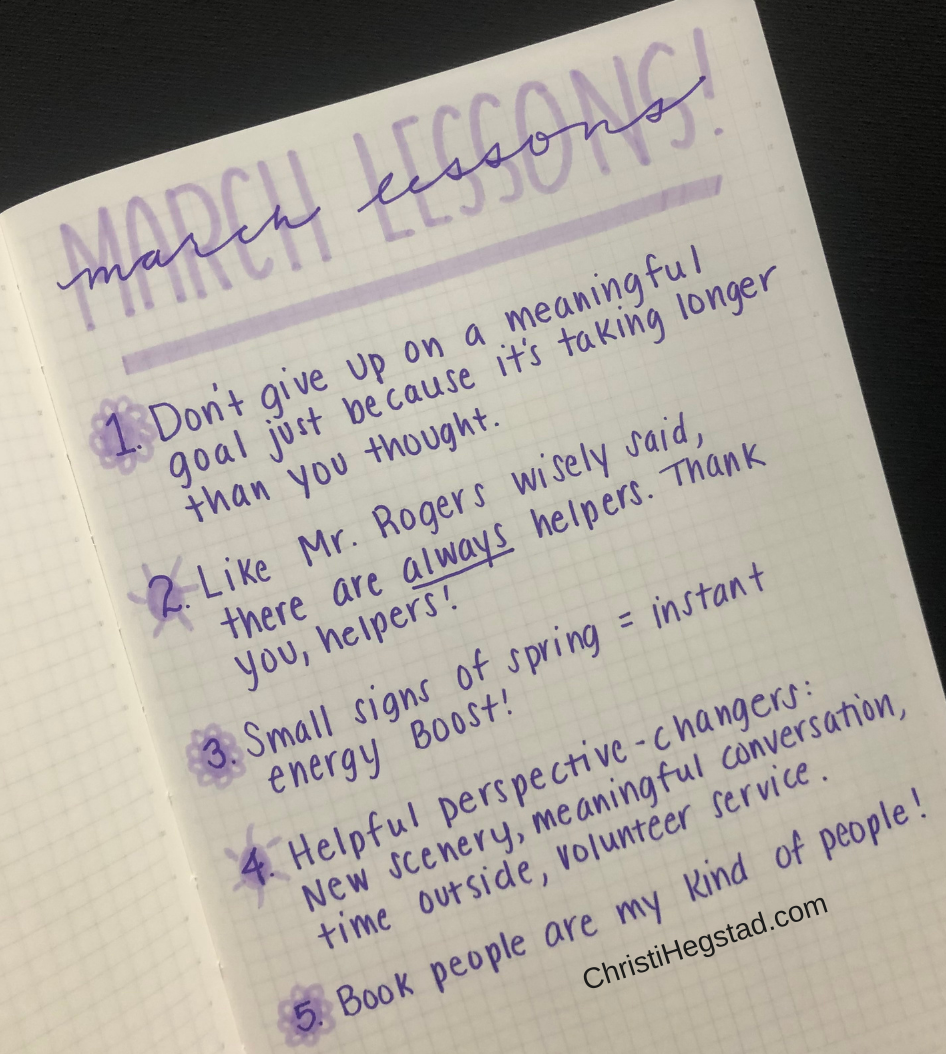 MARCH LESSONS!
march lessons
1. Don't give up on a meaningful
goal just because it's taking longer
than you thought.
2. Like Mr. Rogers wisely said,
there are always helpers. Thank
you, helpers!
3. Small signs of spring = instant
energy Boost!
4. Helpful perspective-changers:
New scenery, meaningful conversation,
time outside, volunteer service.
5. Book people are my kind of people!
ChristiHegstad.com